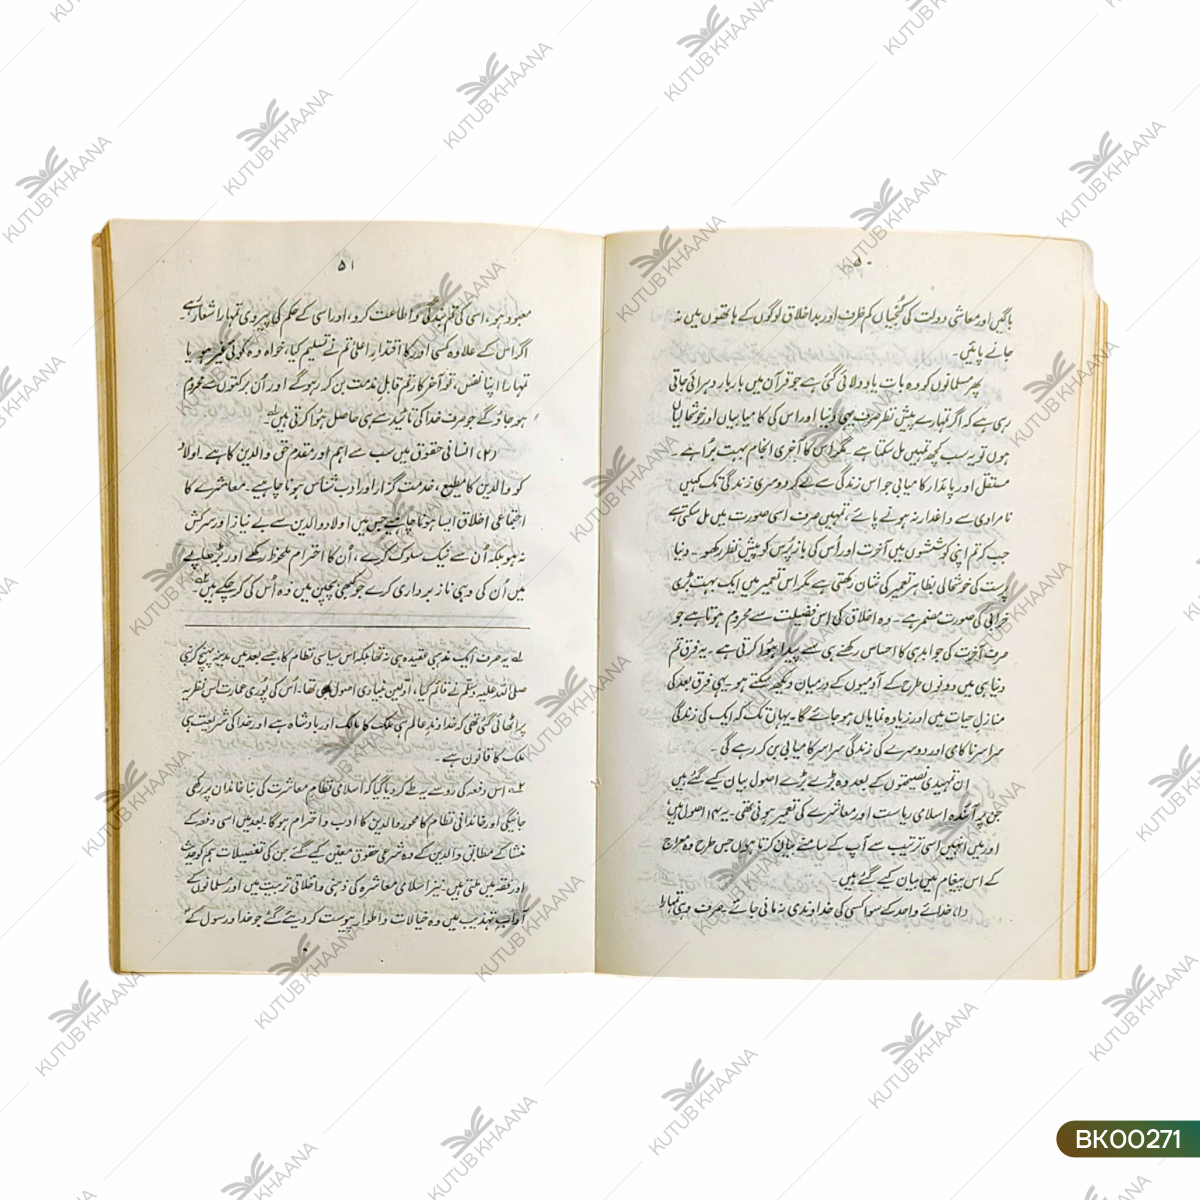 ۵۰
باگیں اور معاشی دولت کی کنجیاں کم ظرف اور بد اخلاق لوگوں کے ہاتھوں میں نہ
جانے پائیں۔
پھر مسلمانوں کو وہ بات یاد دلائی گئی ہے جو قرآن میں بار بار دہرائی جاتی
رہی ہے کہ اگر تمہارے پیش نظر صرف یہی دنیا اور اس کی کامیابیاں اور خوشحالیاں
ہوں تو یہ سب کچھ تمہیں مل سکتا ہے۔ مگر اس کا آخری انجام بہت بُرا ہے۔
مستقل اور پائدار کامیابی جو اس زندگی سے لے کر دوسری زندگی تک کہیں
نامرادی سے داغدار نہ ہونے پائے، تمہیں صرف اسی صورت میں مل سکتی ہے
جب کہ تم اپنی کوششوں میں آخرت اور اُس کی بازپرس کو پیش نظر رکھو۔ دنیا
پرست کی خوشحالی بظاہر تعمیر کی شان رکھتی ہے مگر اس تعمیر میں ایک بہت بڑی
خرابی کی صورت مضمر ہے۔ وہ اخلاق کی اس فضیلت سے محروم ہوتا ہے جو
صرف آخرت کی جوابدہی کا احساس رکھنے ہی سے پیدا ہوا کرتی ہے۔ یہ فرق تم
دنیا ہی میں دونوں طرح کے آدمیوں کے درمیان دیکھ سکتے ہو۔ یہی فرق بعد کی
منازلِ حیات میں اور زیادہ نمایاں ہو جائے گا۔ یہاں تک کہ ایک کی زندگی
سراسر ناکامی اور دوسرے کی زندگی سراسر کامیابی بن کر رہے گی۔
ان تمہیدی نصیحتوں کے بعد وہ بڑے بڑے اصول بیان کیے گئے ہیں
جن پر آئندہ اسلامی ریاست اور معاشرے کی تعمیر ہونی تھی۔ یہ ۱۴ اصول ہیں
اور میں انہیں اسی ترتیب سے آپ کے سامنے بیان کرتا ہوں جس طرح وہ معراج
کے اس پیغام میں بیان کیے گئے ہیں۔
(۱) خدائے واحد کے سوا کسی کی خداوندی نہ مانی جائے۔ صرف وہی تمہارا
۵۱
معبود ہو، اسی کی تم بندگی و اطاعت کرو، اور اسی کے حکم کی پیروی تمہارا شعار ہے۔
اگر اس کے علاوہ کسی اور کا اقتدارِ اعلیٰ تم نے تسلیم کیا، خواہ وہ کوئی غیر ہو، یا
تمہارا اپنا نفس، تو آخر کار تم قابل مذمت بن کر رہو گے اور اُن برکتوں سے محروم
ہو جاؤ گے جو صرف خدا کی تائید سے ہی حاصل ہوا کرتی ہیں۔؎۱
(۲) انسانی حقوق میں سب سے اہم اور مقدم حق والدین کا ہے۔ اولاد
کو والدین کا مطیع، خدمت گزار اور ادب شناس ہونا چاہیے۔ معاشرے کا
اجتماعی اخلاق ایسا ہونا چاہیے جس میں اولاد والدین سے بے نیاز اور سرکش
نہ ہو بلکہ اُن سے نیک سلوک کرے، اُن کا احترام ملحوظ رکھے اور بڑھاپے
میں اُن کی وہی ناز برداری کرے جو کبھی بچپن میں وہ اُس کی کر چکے ہیں۔؎۲
؎۱ یہ صرف ایک مذہبی عقیدہ ہی نہ تھا بلکہ اس سیاسی نظام کا، جسے بعد میں مدینہ پہنچ کر نبی
صلی اللہ علیہ وسلم نے قائم کیا، اولین بنیادی اصول بھی تھا، اُس کی پوری عمارت اس نظریہ
پر اٹھائی گئی تھی کہ خداوندِ عالم ہی ملک کا مالک اور بادشاہ ہے اور خدا کی شریعت ہی
ملک کا قانون ہے۔
؎۲ اس دفعہ کی رو سے یہ طے کر دیا گیا کہ اسلامی نظامِ معاشرت کی بنا خاندان پر رکھی
جائیگی اور خاندانی نظام کا محور والدین کا ادب و احترام ہوگا۔ بعد میں اسی دفعہ کے
منشا کے مطابق والدین کے وہ شرعی حقوق معین کیے گئے جن کی تفصیلات ہم کو حدیث
اور فقہ میں ملتی ہیں۔ نیز اسلامی معاشرہ کی ذہنی و اخلاقی تربیت میں اور مسلمانوں کے
آدابِ تہذیب میں وہ خیالات و اطوار پیوست کر دیئے گئے جو خدا و رسول کے
KUTUB KHAANA
BK00271